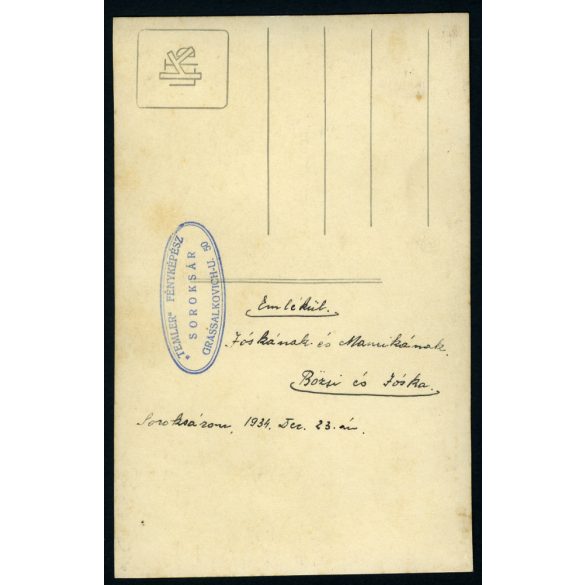 "TEMLER" FÉNYKÉPÉSZ
SOROKSÁR
GRASSALKOVICH-U. 50
Emlékül.
Jóskának és Mamikának.
Bözsi és Jóska.
Soroksáron, 1934. Dec. 23.-án.